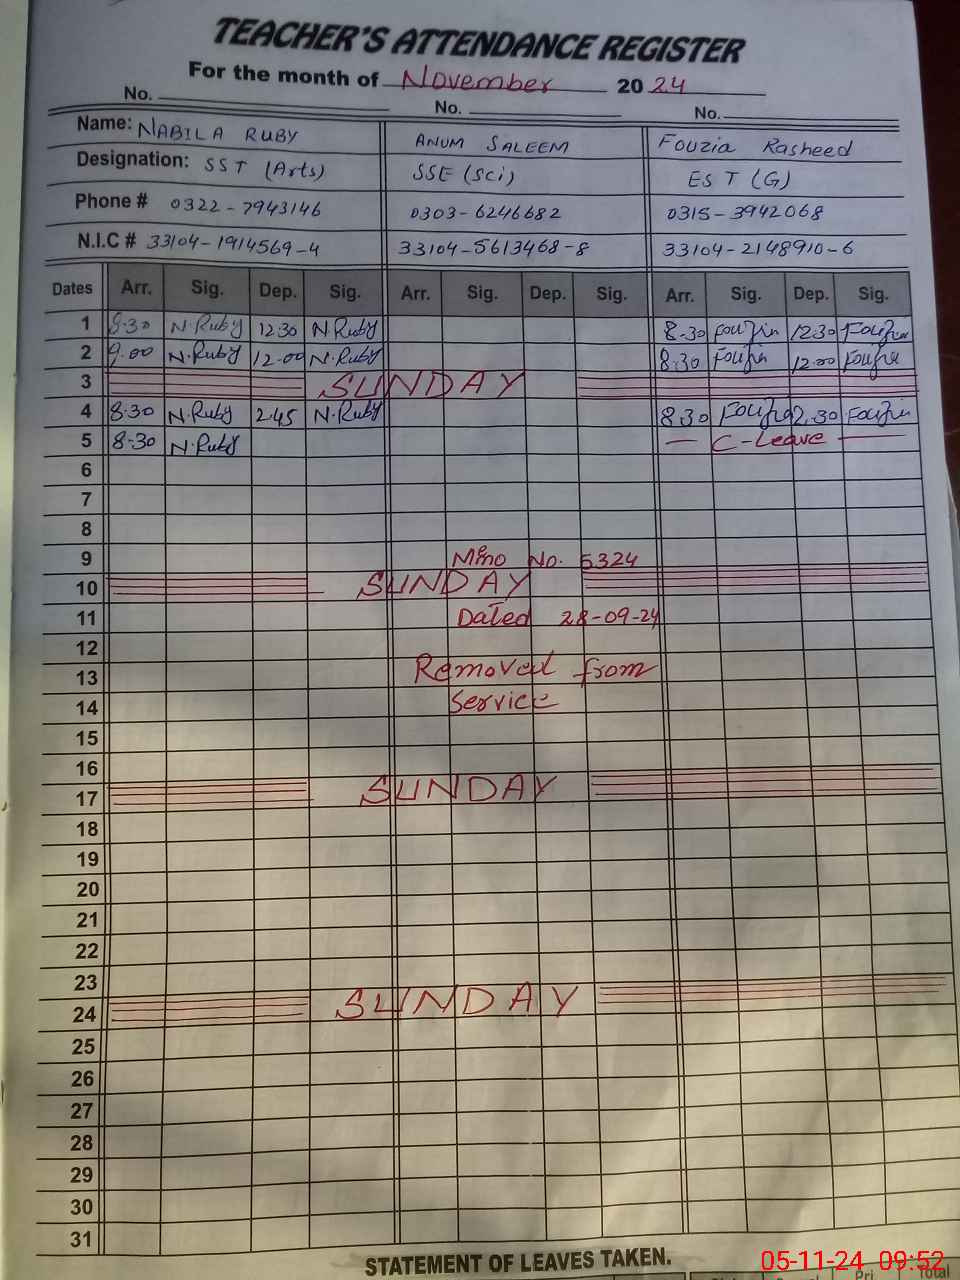 TEACHER'S ATTENDANCE REGISTER
For the month of November 2024
No. No. No.
Name: NABILA RUBY ANUM SALEEM Fouzia Rasheed
Designation: SST (Arts) SSE (Sci) EST (G)
Phone # 0322-7943146 0303-6246682 0315-3942068
N.I.C # 33104-1914569-4 33104-5613468-8 33104-2148910-6
Dates Arr. Sig. Dep. Sig. Arr. Sig. Dep. Sig. Arr. Sig. Dep. Sig.
1 8-30 N.Ruby 12:30 N.Ruby 8-30 Fouzia 12:30 Fouzia
2 9.00 N.Ruby 12-00 N.Ruby 8:30 Fouzia 12:00 Fouzia
3 SUNDAY
4 8-30 N.Ruby 2:45 N.Ruby 8:30 Fouzia 2:30 Fouzia
5 8-30 N.Ruby — C-Leave —
6
7
8
9 Memo No. 5324
10 SUNDAY
11 Dated 28-09-24
12
13 Removed from
14 Service
15
16
17 SUNDAY
18
19
20
21
22
23
24 SUNDAY
25
26
27
28
29
30
31
STATEMENT OF LEAVES TAKEN.
05-11-24 09:52
Pri Total